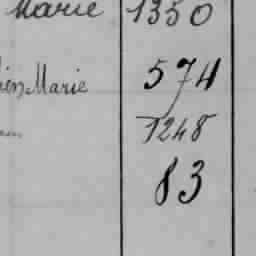 Marie 1350
Marie 574
1248
83